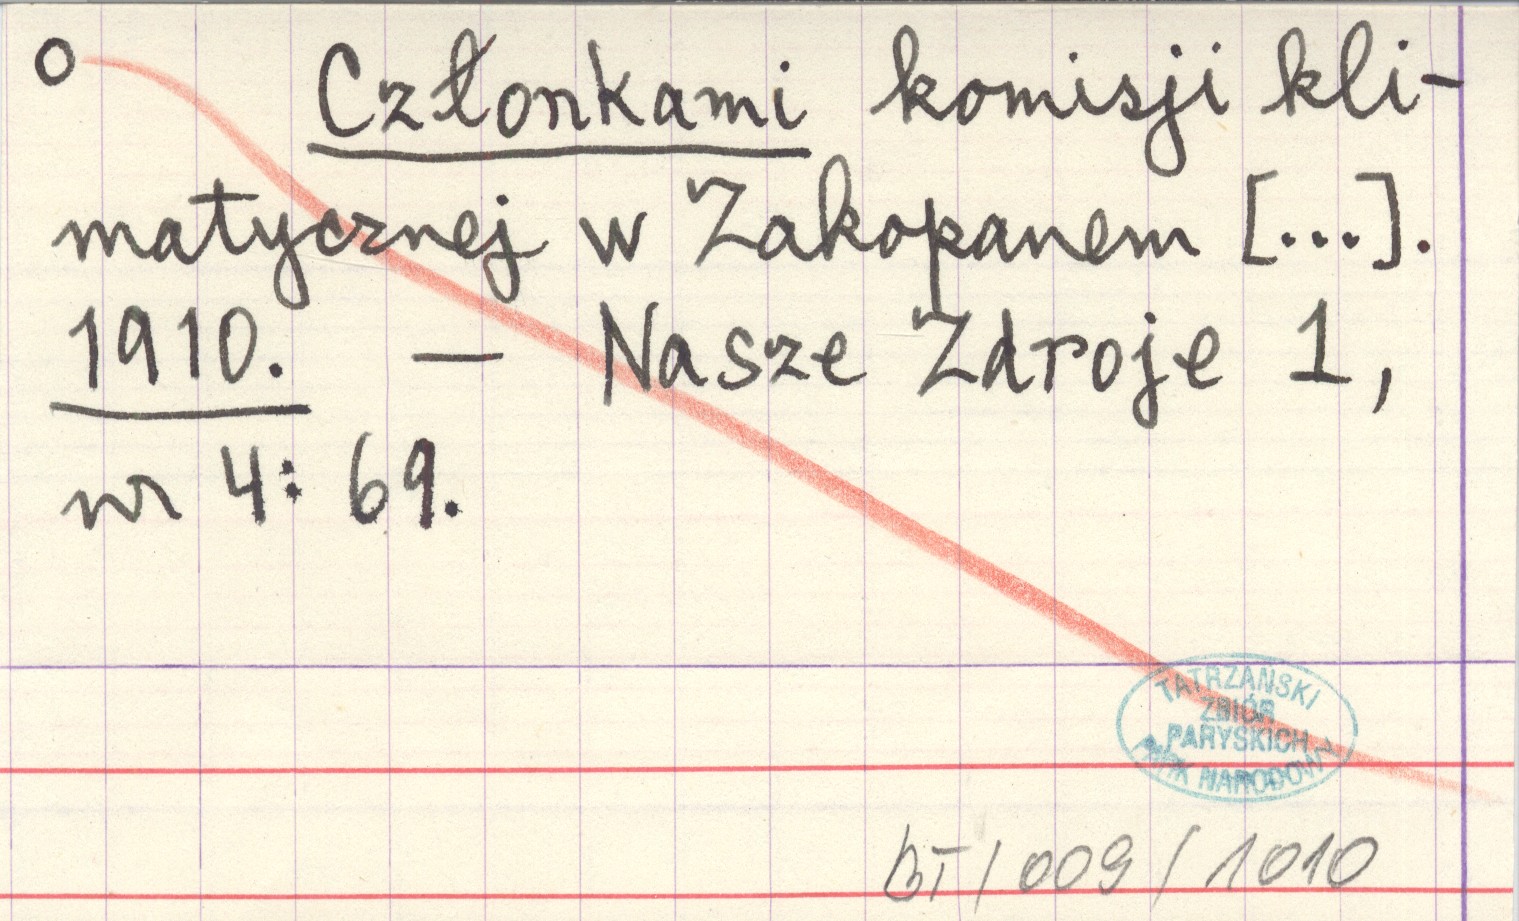 O Członkami komisji kli-
matycznej w Zakopanem [...].
1910. — Nasze Zdroje 1,
nr 4: 69.
TATRZAŃSKI
ZBIÓR
PARYSKICH
PARK NARODOWY
BT/009/1010